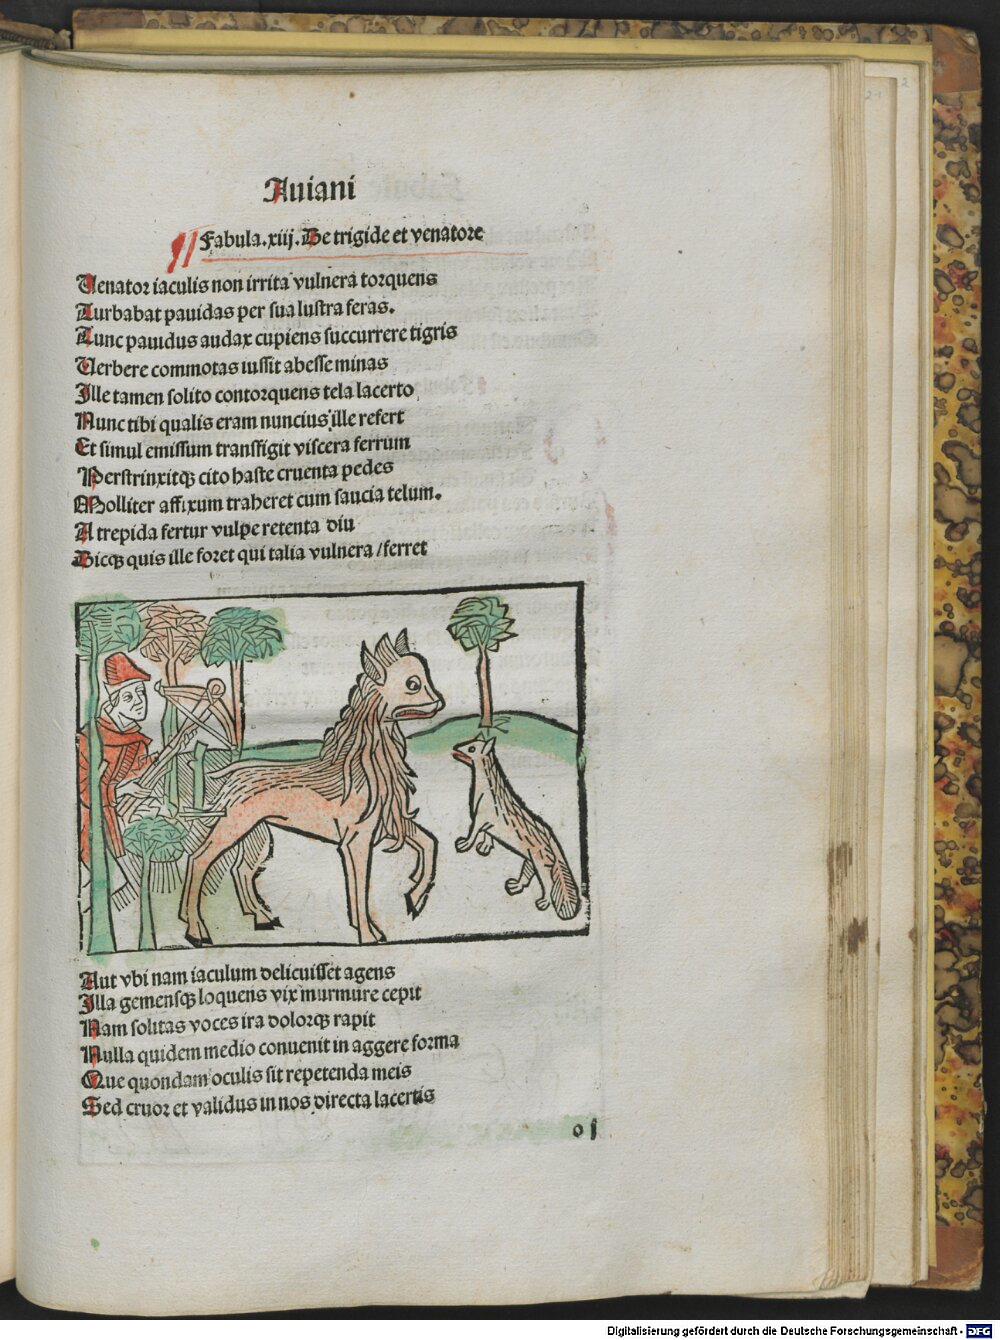 Auiani
Fabula.xiij. De trigide et venatore
Venator iaculis non irrita vulnera torquens
Turbabat pauidas per sua lustra feras.
Tunc pauidus audax cupiens succurrere tigris
Uerbere commotas iussit abesse minas
Ille tamen solito contorquens tela lacerto
Nunc tibi qualis eram nuncius ille refert
Et simul emissum transfigit viscera ferrum
Perstrinxitqꝫ cito haste cruenta pedes
Molliter affixum traheret cum saucia telum.
A trepida fertur vulpe retenta diu
Dicqꝫ quis ille foret qui talia vulnera /ferret
Aut vbi nam iaculum delicuisset agens
Illa gemensqꝫ loquens vix murmure cepit
Nam solitas voces ira dolorqꝫ rapit
Nulla quidem medio conuenit in aggere forma
Que quondam oculis sit repetenda meis
Sed cruor et validus in nos directa lacertis
o j
Digitalisierung gefördert durch die Deutsche Forschungsgemeinschaft - DFG